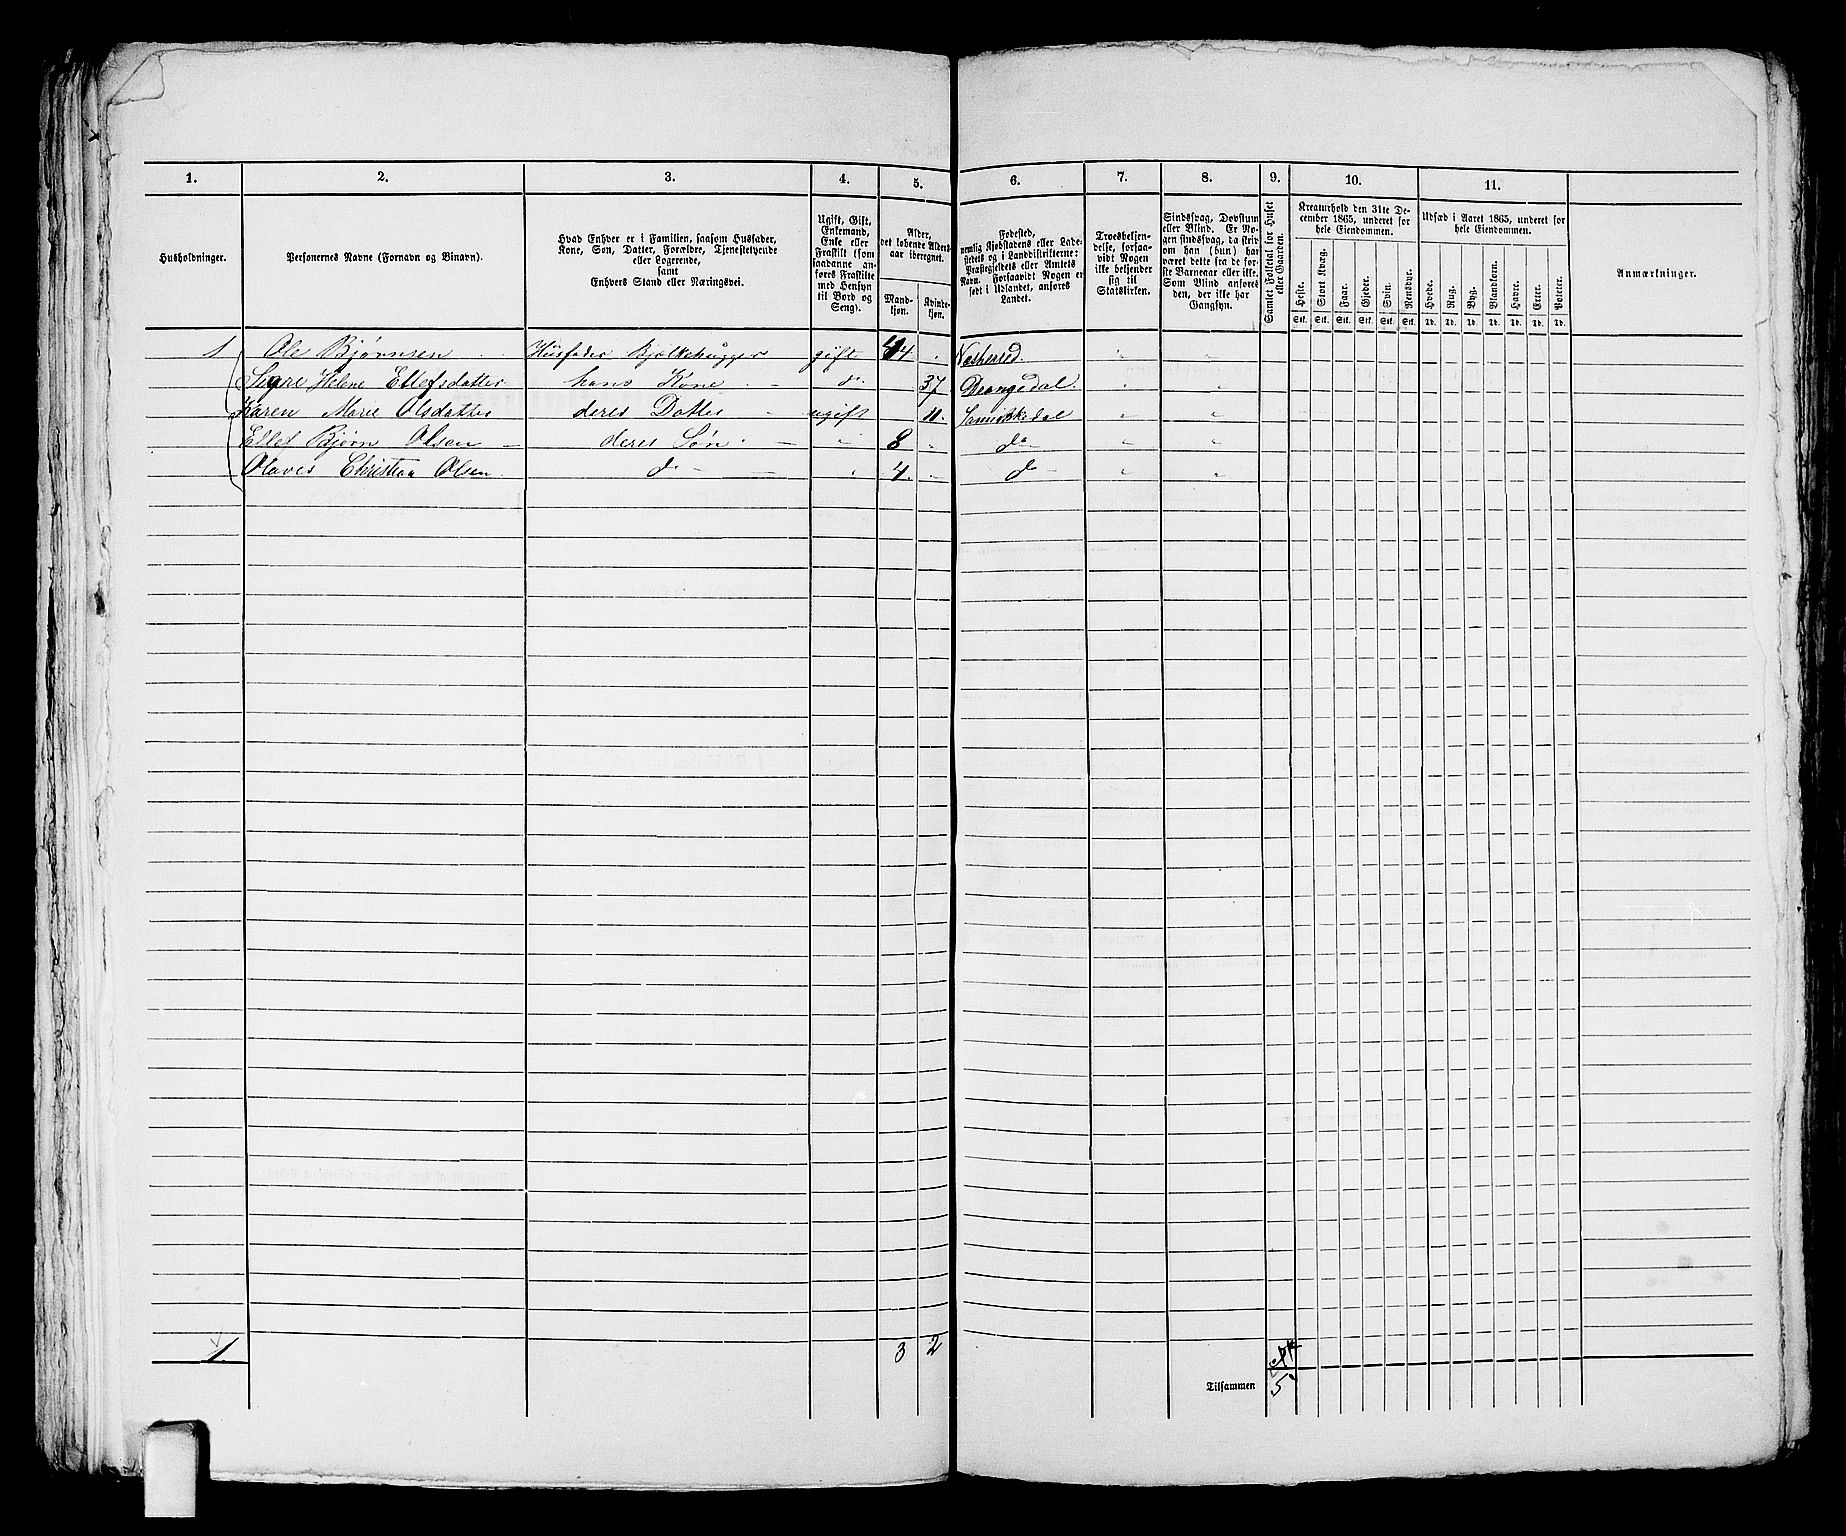 1. 2. 3. 4. 5. 6. 7. 8. 9. 10. 11.
Husholdninger.
Personernes Navne (Fornavn og Binavn).
Hvad Enhver er i Familien, saasom Husfader,
Kone, Søn, Datter, Forældre, Tjenestetyende
eller Logerende,
samt
Enhvers Stand eller Næringsvei.
Ugift, Gift,
Enkemand,
Enke eller
Fraskilt (som
saadanne an-
føres Fraskilte
med Hensyn
til Bord og
Seng).
Alder,
det løbende Alders-
aar iberegnet.
Mand-
kjøn.
Kvinde-
kjøn.
Fødested,
nemlig Kjøbstadens eller Lade-
stedets og i Landdistrikterne:
Præstegjeldets eller Amtets
Navn. Forsaavidt Nogen er
født i Udlandet, anføres
Landet.
Troesbekjen-
delse, forsaa-
vidt Nogen
ikke bekjender
sig til
Statskirken.
Sindssvag, Døvstum
eller Blind. Er No-
gen sindssvag, da skriv
om han (hun) har
været dette fra de før-
ste Barneaar eller ikke.
Som Blind anføres
den, der ikke har
Gangsyn.
Samlet Folketal for Huset
eller Gaarden.
Kreaturhold den 31te De-
cember 1865, underet for
hele Eiendommen.
Heste. Stort Kvæg. Faar. Gjeder. Svin. Rensdyr.
Stk. Stk. Stk. Stk. Stk. Stk.
Udsæd i Aaret 1865, underet for
hele Eiendommen.
Hvede. Rug. Byg. Blandkorn. Havre. Erter. Poteter.
Td. Td. Td. Td. Td. Td. Td.
Anmærkninger.
1 Ole Bjørnsen Husfader Bjelkehugger gift 44 " "
Helene Ellefsdatter hans Kone d° 37 Drangedal " "
Karen Marie Olsdatter deres Datter ugift 11 Sannikedal " "
Ellef Bjørn Olsen deres Søn " 8 " d° " "
Olaves Christian Olsen d° " 4 " d° " "
1 3 2
Tilsammen 5